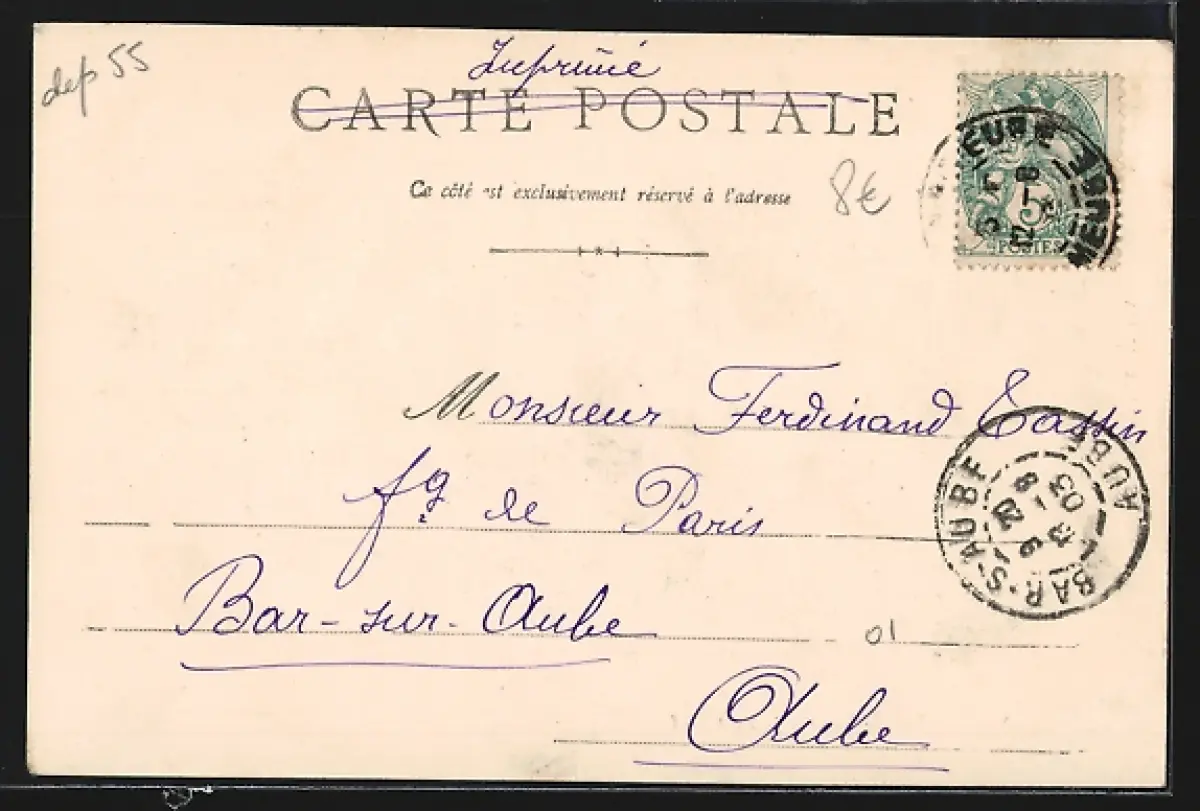 dep 55
Imprimé
CARTE POSTALE
Ce côté est exclusivement réservé à l'adresse
8€
5
POSTES
MEUSE
Monsieur Ferdinand Tassin
fg. de Paris
Bar-sur-Aube
Aube
01
BAR-S-AUBE
AUBE
8
03